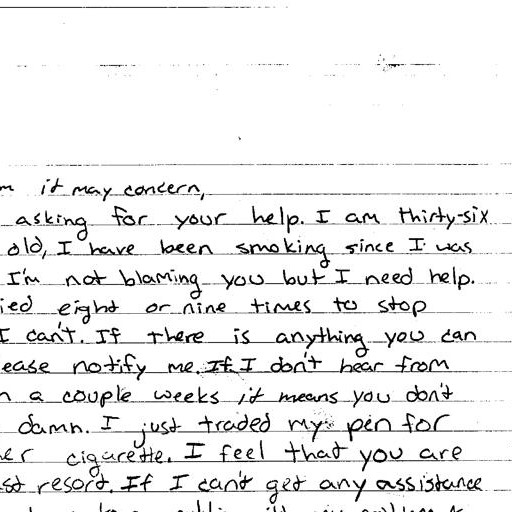 m it may concern,
asking for your help. I am thirty-six
old, I have been smoking since I was
I'm not blaming you but I need help.
ied eight or nine times to stop
I can't. If there is anything you can
ease notify me. If I don't hear from
n a couple weeks it means you don't
damn. I just traded my pen for
er cigarette. I feel that you are
st resort. If I can't get any assistance